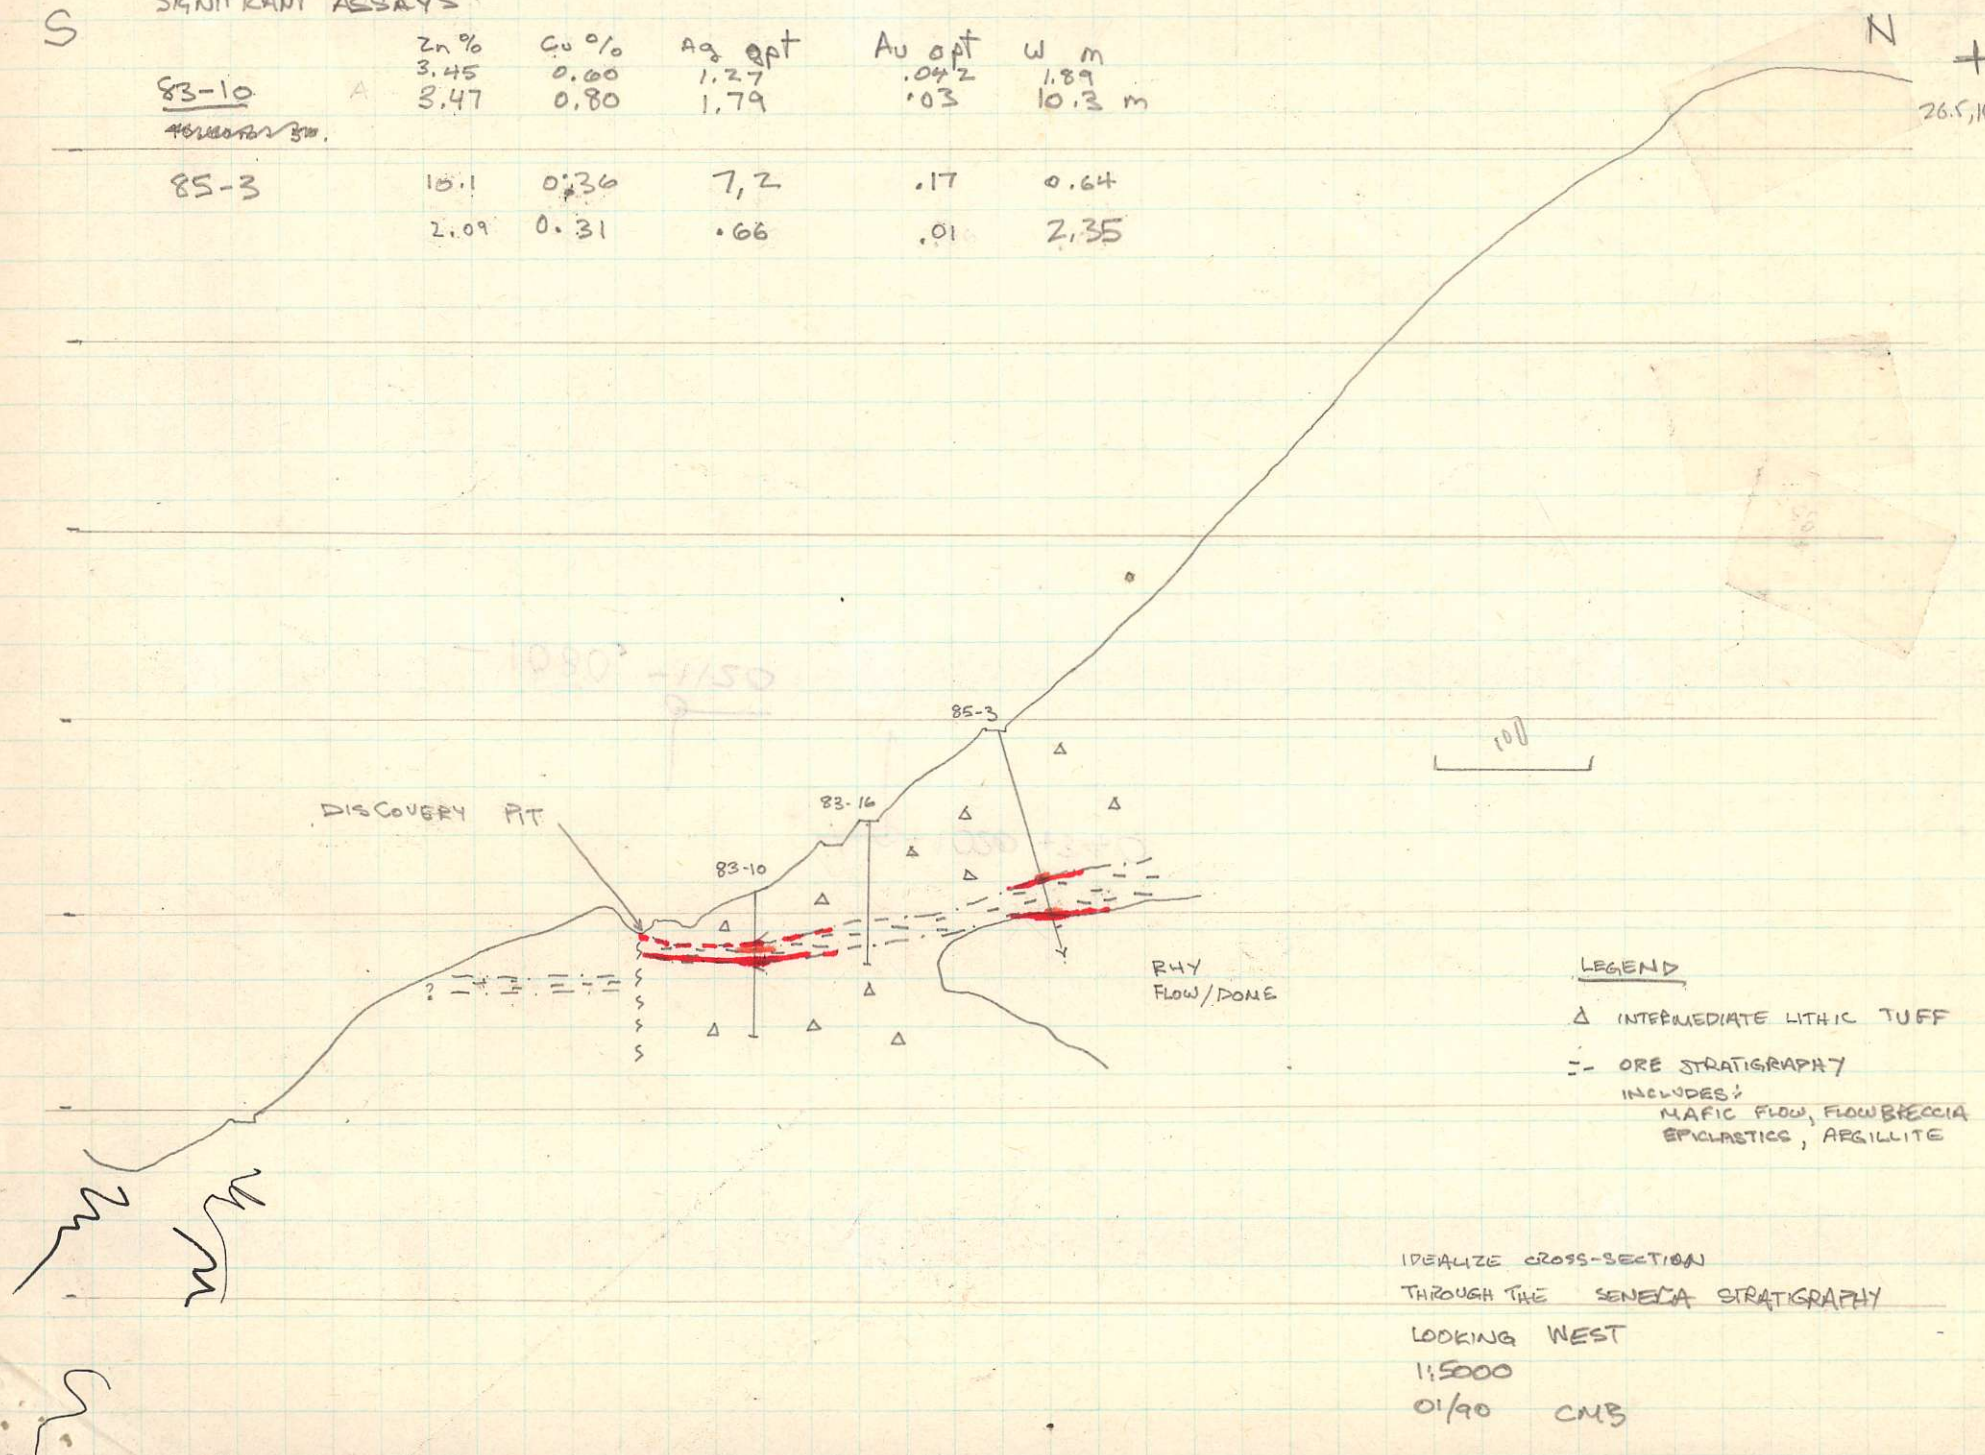 SIGNIFICANT ASSAYS
S
N
Zn % Cu % Ag opt Au opt W m
3.45 0.60 1.27 .042 1.89
83-10 3.47 0.80 1.79 .03 10.3 m
85-3 10.1 0.36 7,2 .17 0.64
2.09 0.31 .66 .01 2.35
85-3
83-16
DISCOVERY PIT
83-10
?
RHY
FLOW/DOME
LEGEND
Δ INTERMEDIATE LITHIC TUFF
=- ORE STRATIGRAPHY
INCLUDES:
MAFIC FLOW, FLOW BRECCIA
EPICLASTICS, ARGILLITE
IDEALIZE CROSS-SECTION
THROUGH THE SENECA STRATIGRAPHY
LOOKING WEST
1:5000
01/90 CMB